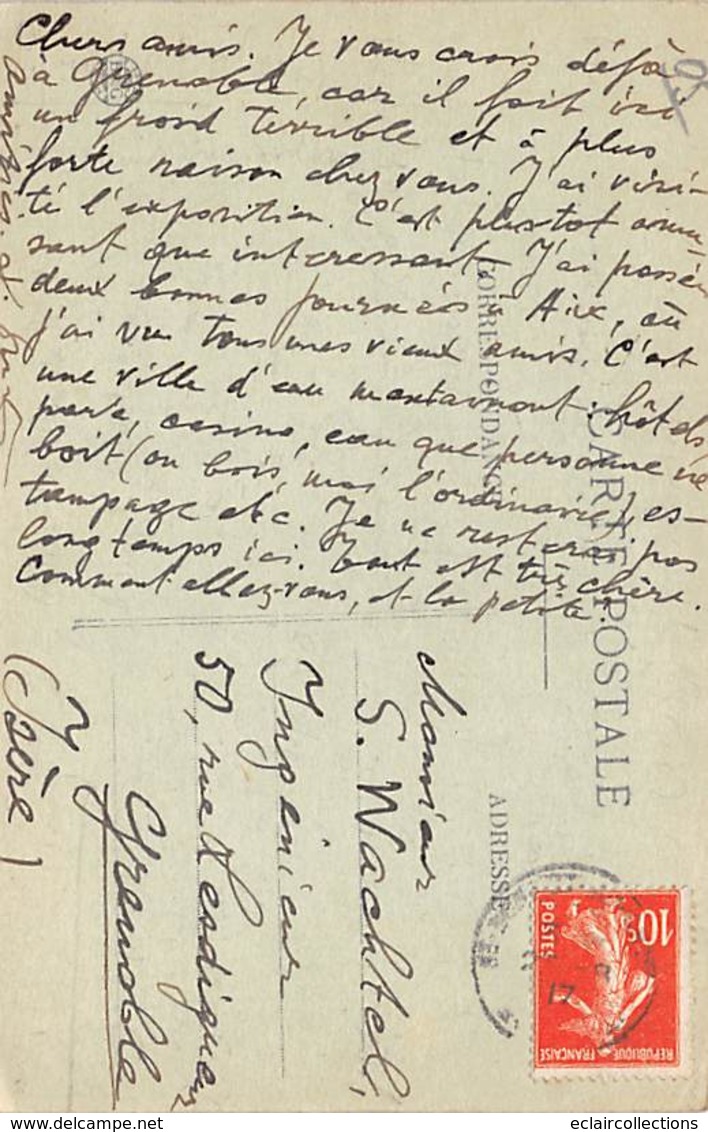 Chers amis. Je vous crois déjà
à Grenoble, car il fait ici
un froid terrible et à plus
forte raison chez vous. J'ai visi-
té l'exposition. C'est plustot amu-
sant que interessant. J'ai passé
deux bonnes journées à Aix, où
j'ai vu tous mes vieux amis. C'est
une ville d'eau maintenant: hôtels,
parc, casino, eau que personne ne
boit (on bois, moi l'ordinaire), es-
tampage etc. Je ne resterai pas
longtemps ici. Tout est très chère.
Comment allez-vous, et la petite?
Amitiés et
CARTE POSTALE
CORRESPONDANCE
ADRESSE
Monsieur
S. Wachtel,
Ingénieur
50, rue Lesdiguières
Grenoble
(Isère)
10c
POSTES
REPUBLIQUE FRANÇAISE
17
eclaircollections